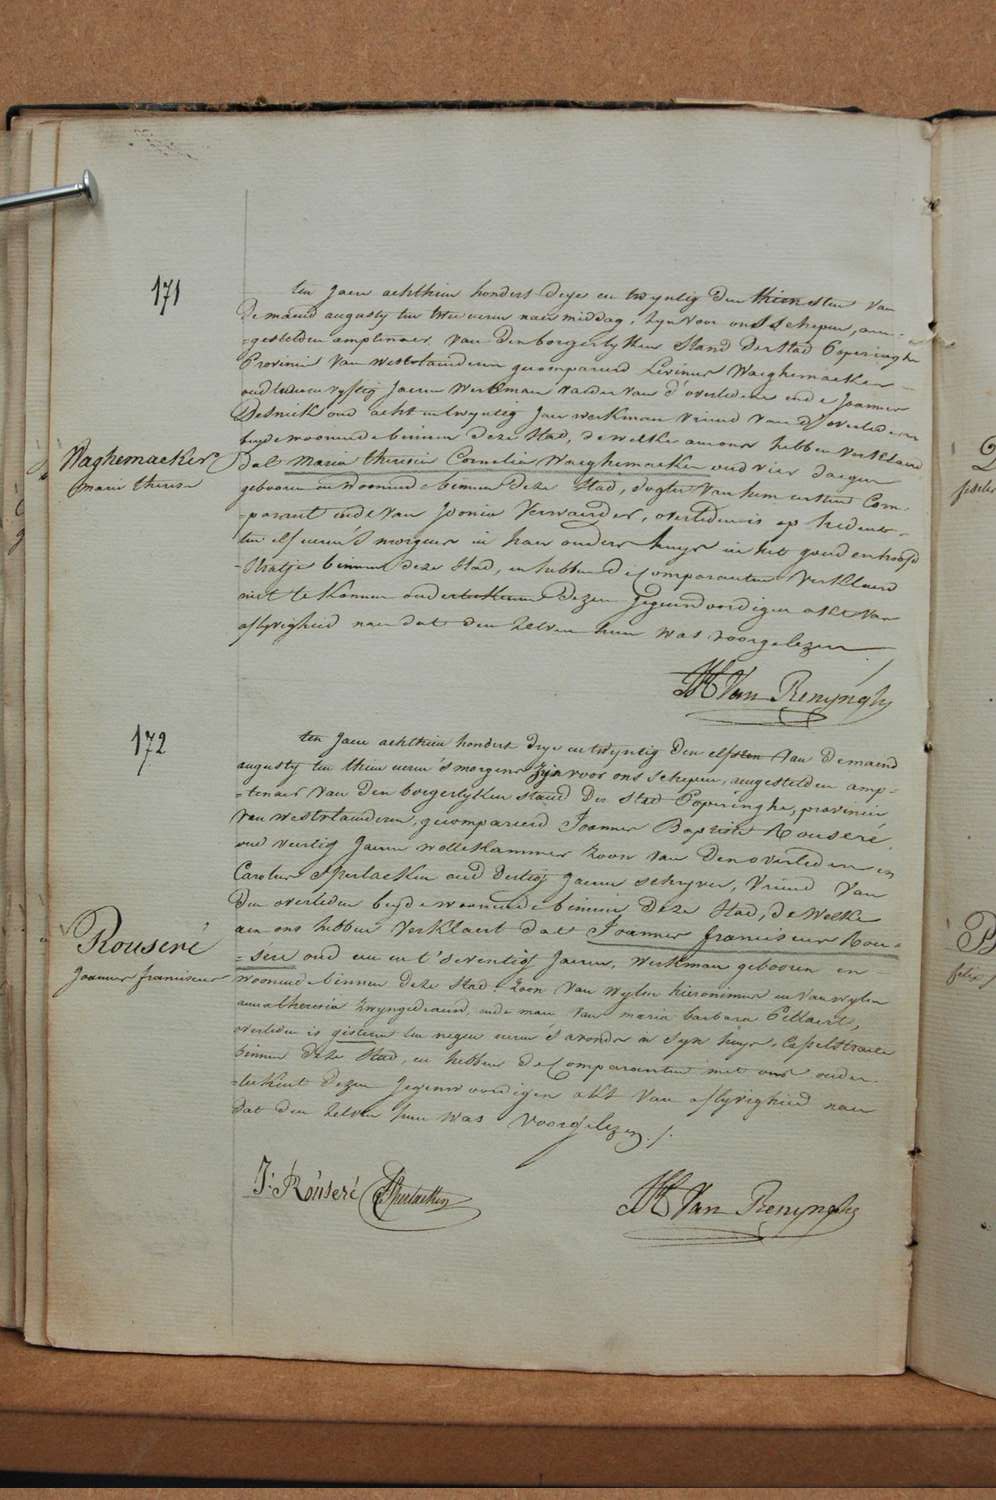 171
ten Jaere achthien hondert drye en twyntig den thiensten van
de maend augusty ten twee uren naer middag, zyn voor ons schepen, aen-
-gestelden amptenaer van den borgerlyken Stand der Stad Poperinghe
Provincie van westvlaenderen gecompareerd Livinus Waeghemaeker
oud en vyftig Jaeren Werkman vaeder van d'overledene ende Joannes
Desnick oud acht en twyntig Jaer werkman vriend van d'overledene
beyde woonende binnen deze Stad, de welke aen ons hebben verklaerd
Waghemaeker
marie therese
dat maria theresia Cornelia Waeghemaeker oud vier daegen
gebooren en Woonende binnen deze Stad, dogter van hem eersten Com-
-parant ende van Verwaerder, overleden is op heden
ten elf uren 's morgens in haer ouders huys in het gouden hoofd
-straetje binnen deze Stad, en hebben de Comparanten verklaerd
niet te konnen onderteekenen dezen Jegenwoordigen akt van
aflyvigheid naer dat den zelven hun was voorgelezen
Van Renynghe
172
ten Jaere achthien hondert drye en twyntig den elfsten van de maend
augusty ten thien uren 's morgens zyn voor ons schepen, aengestelden amp-
-tenaer van den borgerlyken stand der Stad Poperinghe, provincie
van westvlaenderen, gecompareerd Joannes Baptiste Rouseré
oud veertig Jaeren wollekammer zoon van den overleden en
Carolus Sperlaeken oud dertig Jaeren schryver, vriend van
den overleden beyde woonende binnen deze Stad, de welke
aen ons hebben verklaert dat Joannes franciscus Rou-
Rouseré
Joannes franciscus
-seré oud een en t'seventig Jaeren, werkman gebooren en
woonende binnen deze Stad, zoon van wylen hieronimus en van wylen
anna theresia Zwyngedraeud, ende man van maria barbara Pellaert,
overleden is gisteren ten negen uren 's avonds in zyn huys, Casselstraete
binnen deze Stad, en hebben de Comparanten met ons onder-
-teekent dezen Jegenwoordigen akt van aflyvigheid naer
dat den zelven hun was voorgelezen
J: Rouseré C Sperlaeken
Van Renynghe